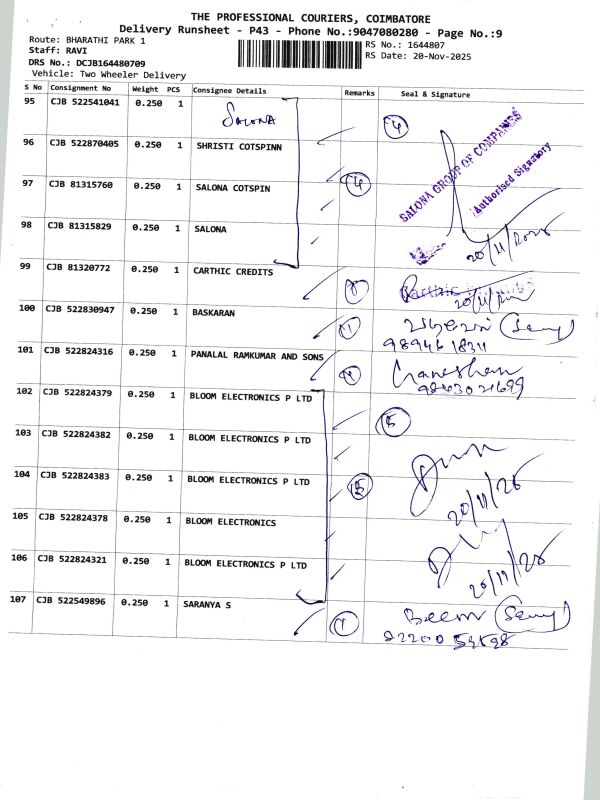 THE PROFESSIONAL COURIERS, COIMBATORE
Delivery Runsheet - P43 - Phone No.:9047080280 - Page No.:9
Route: BHARATHI PARK 1
RS No.: 1644807
Staff: RAVI
RS Date: 20-Nov-2025
DRS No.: DCJB164480709
Vehicle: Two Wheeler Delivery
S No Consignment No Weight PCS Consignee Details Remarks Seal & Signature
95 CJB 522541041 0.250 1 SALONA 4
96 CJB 522870405 0.250 1 SHRISTI COTSPINN
97 CJB 81315760 0.250 1 SALONA COTSPIN 4
SALONA GROUP OF COMPANIES
Authorised Signatory
98 CJB 81315829 0.250 1 SALONA
20/11/2025
99 CJB 81320772 0.250 1 CARTHIC CREDITS
Carthic
100 CJB 522830947 0.250 1 BASKARAN 1
101 CJB 522824316 0.250 1 PANALAL RAMKUMAR AND SONS
Ganeshan
102 CJB 522824379 0.250 1 BLOOM ELECTRONICS P LTD 5
103 CJB 522824382 0.250 1 BLOOM ELECTRONICS P LTD
104 CJB 522824383 0.250 1 BLOOM ELECTRONICS P LTD 5
20/11/25
105 CJB 522824378 0.250 1 BLOOM ELECTRONICS
106 CJB 522824321 0.250 1 BLOOM ELECTRONICS P LTD
20/11/25
107 CJB 522549896 0.250 1 SARANYA S 1